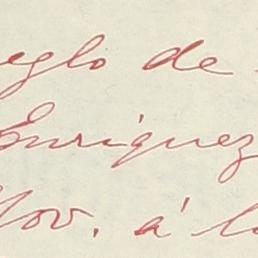 eglo de
Enriquez
Nov. á l